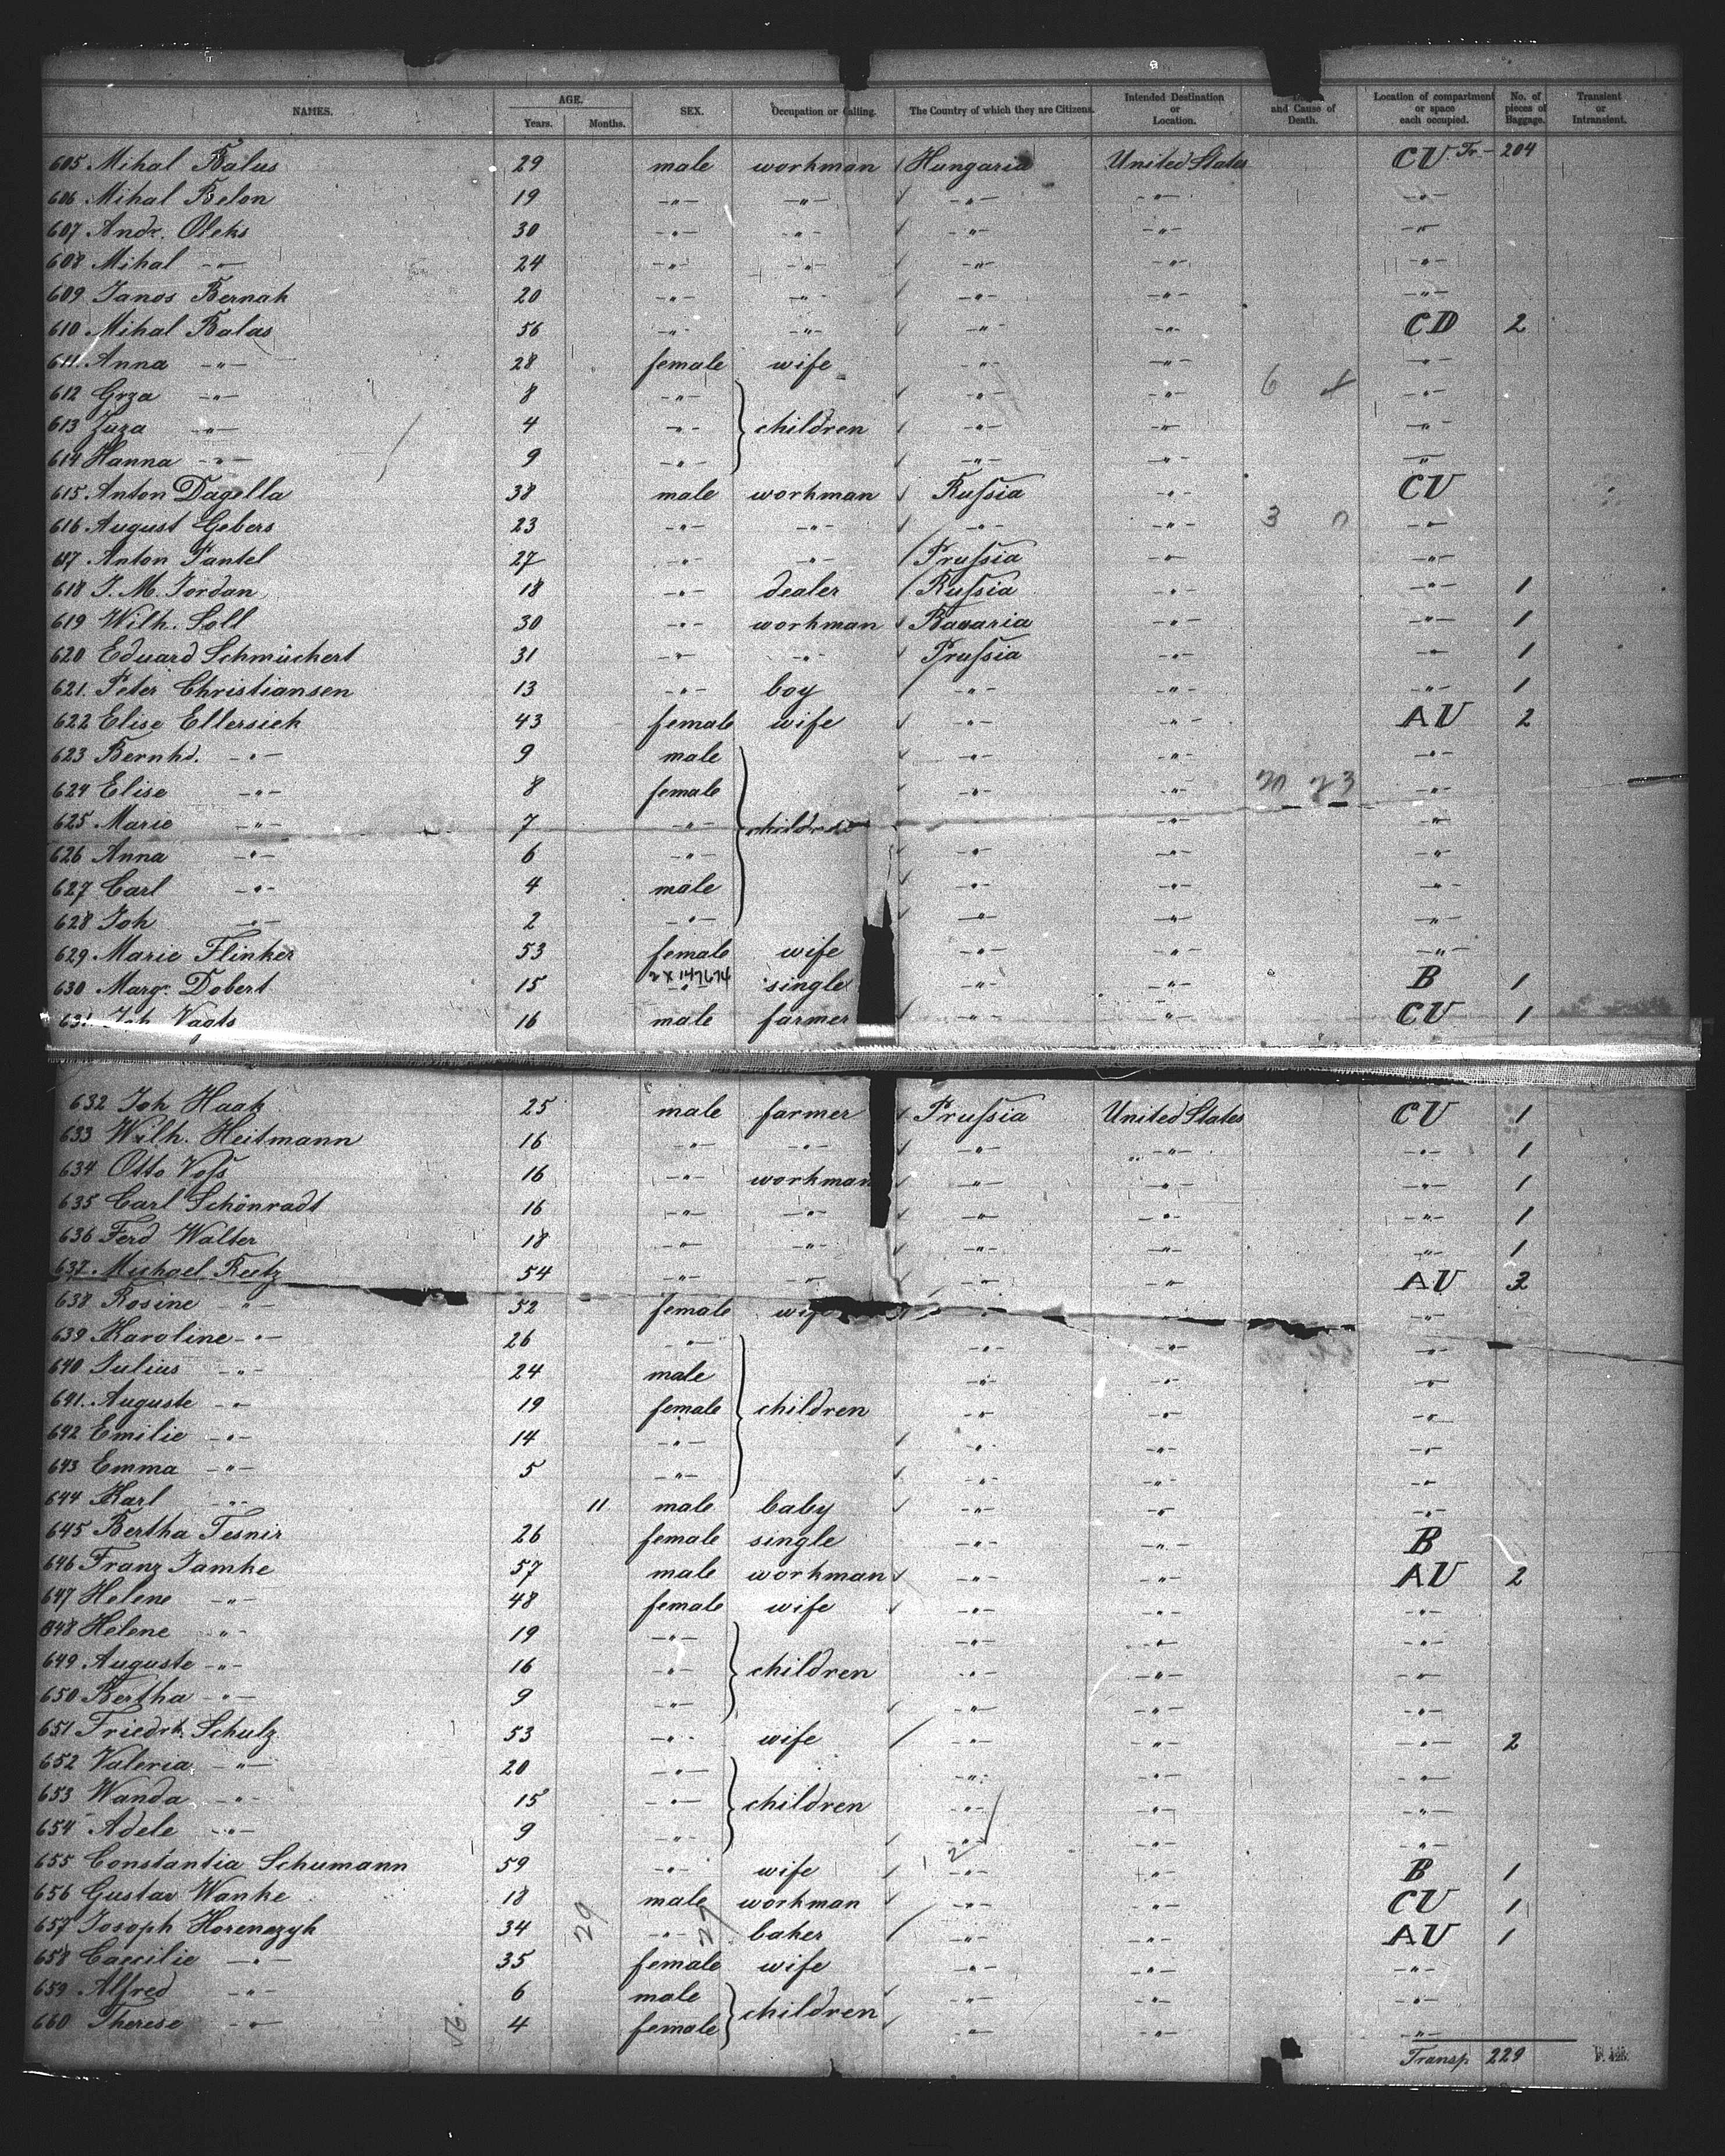 NAMES. AGE. Years. Months. SEX. Occupation or Calling. The Country of which they are Citizens. Intended Destination or Location. and Cause of Death. Location of compartment or space each occupied. No. of pieces of Baggage. Transient or Intransient.
605 Mihal Balas 29 male workman Hungaria United States CU Tr.- 204
606 Mihal Belon 19 -"- -"- -"- -"- -"-
607 Andr. Oleks 30 -"- -"- -"- -"- -"-
608 Mihal -"- 24 -"- -"- -"- -"- -"-
609 Janos Bernak 20 -"- -"- -"- -"- -"-
610 Mihal Balas 56 -"- -"- -"- -"- CD 2
611 Anna -"- 28 female wife -"- -"- -"-
612 Grza -"- 8 -"- -"- -"- -"-
613 Zuza -"- 4 -"- children -"- -"- -"-
614 Hanna -"- 9 -"- -"- -"- -"-
615 Anton Dagella 38 male workman Russia -"- CU
616 August Gebers 23 -"- -"- -"- -"- 3 -"-
617 Anton Pantel 27 -"- -"- Prussia -"- -"-
618 J. M. Jordan 18 -"- dealer Russia -"- -"- 1
619 Wilh. Soll 30 -"- workman Bavaria -"- -"- 1
620 Eduard Schmückert 31 -"- -"- Prussia -"- -"- 1
621 Peter Christiansen 13 -"- boy -"- -"- -"- 1
622 Elise Ellersiek 43 female wife -"- -"- AU 2
623 Bernhd. -"- 9 male -"- -"- -"-
624 Elise -"- 8 female -"- -"- -"-
625 Marie -"- 7 -"- children -"- -"- -"-
626 Anna -"- 6 -"- -"- -"- -"-
627 Carl -"- 4 male -"- -"- -"-
628 Joh -"- 2 -"- -"- -"- -"-
629 Marie Flinker 53 female wife -"- -"- -"-
630 Margr. Dobert 15 -"- single -"- -"- B 1
631 Joh Vagts 16 male farmer -"- -"- CU 1
632 Joh Haak 25 male farmer Prussia United States CU 1
633 Wilh. Heitmann 16 -"- -"- -"- -"- -"- 1
634 Otto Voss 16 -"- workman -"- -"- -"- 1
635 Carl Schönradt 16 -"- -"- -"- -"- -"- 1
636 Ferd Walter 18 -"- -"- -"- -"- -"- 1
637 Michael Reetz 54 -"- -"- -"- -"- AU 3
638 Rosine -"- 52 female wife -"- -"-
639 Karoline -"- 26 -"- -"- -"- -"-
640 Julius -"- 24 male -"- -"- -"-
641 Auguste -"- 19 female children -"- -"- -"-
642 Emilie -"- 14 -"- -"- -"- -"-
643 Emma -"- 5 -"- -"- -"- -"-
644 Karl -"- 11 male baby -"- -"- -"-
645 Bertha Tesnir 26 female single -"- -"- B
646 Franz Jamke 57 male workman -"- -"- AU 2
647 Helene -"- 48 female wife -"- -"- -"-
648 Helene -"- 19 -"- -"- -"- -"-
649 Auguste -"- 16 -"- children -"- -"- -"-
650 Bertha -"- 9 -"- -"- -"- -"-
651 Friedrk. Schulz 53 -"- wife -"- -"- -"- 2
652 Valeria -"- 20 -"- -"- -"- -"-
653 Wanda -"- 15 -"- children -"- -"- -"-
654 Adele -"- 9 -"- -"- -"- -"-
655 Constantia Schumann 59 -"- wife -"- -"- B 1
656 Gustav Wanke 18 male workman -"- -"- CU 1
657 Joseph Horenczyk 34 -"- baker -"- -"- AU 1
658 Caecilie -"- 35 female wife -"- -"- -"-
659 Alfred -"- 6 male -"- -"- -"-
660 Therese -"- 4 female children -"- -"- -"-
Transp 229